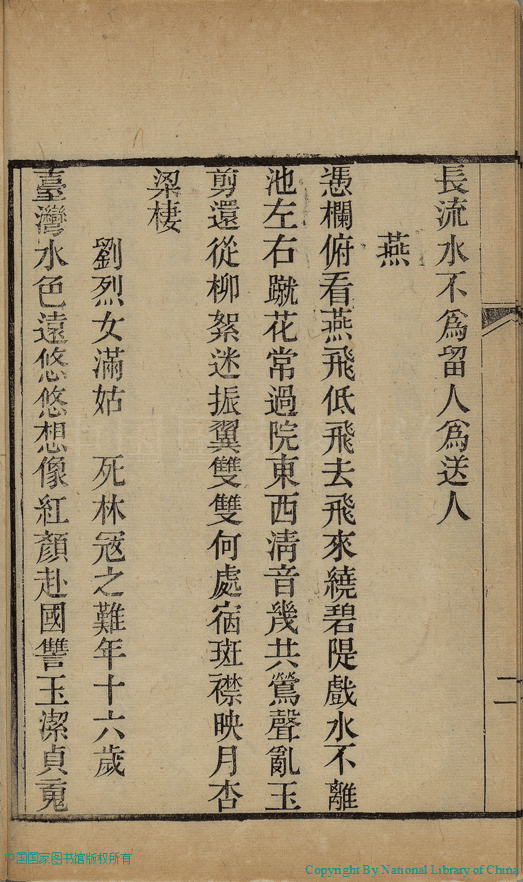 長流水不爲留人爲送人
燕
憑欄俯看燕飛低飛去飛來繞碧隄戲水不離
池左右蹴花常過院東西清音幾共鶯聲亂玉
剪還從柳絮迷振翼雙雙何處宿斑襟映月杏
梁棲
劉烈女滿姑 死林寇之難年十六歲
臺灣水色遠悠悠想像紅顏赴國讐玉潔貞䰟
二
中国国家图书馆版权所有
Copyright By National Library of China